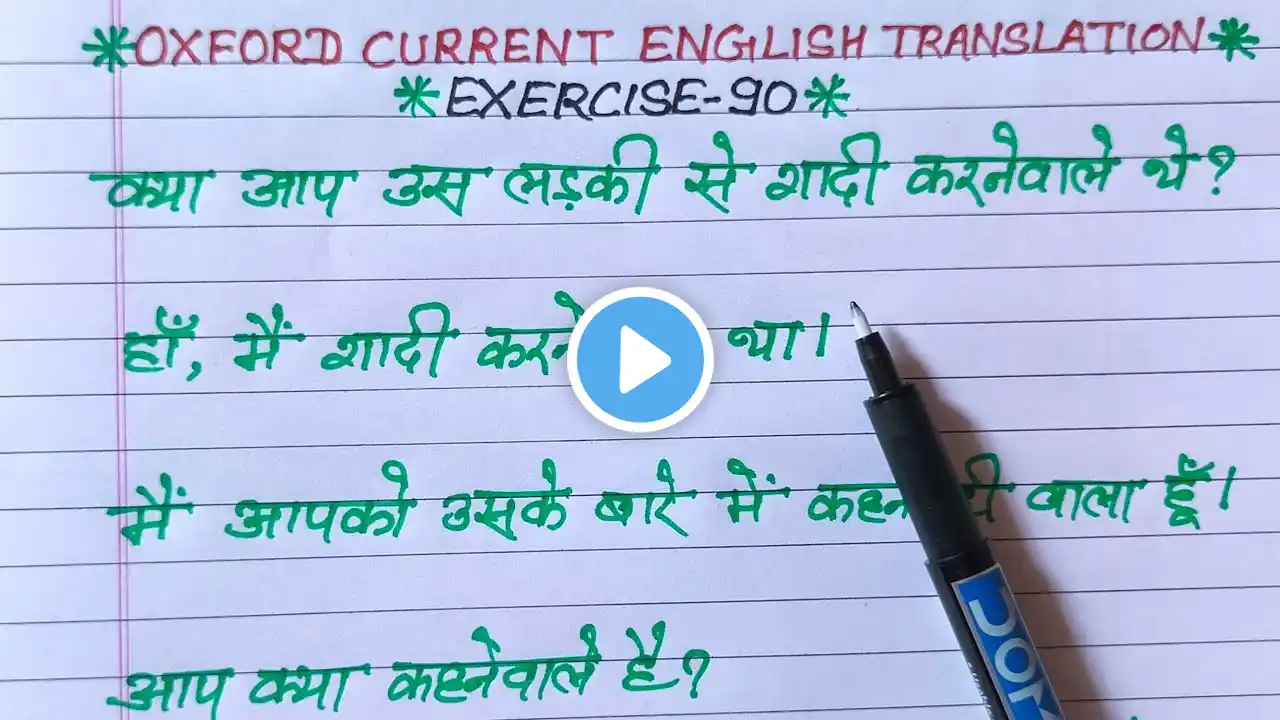 *OXFORD CURRENT ENGLISH TRANSLATION*
*EXERCISE-90*
क्या आप उस लड़की से शादी करनेवाले थे?
हाँ, मैं शादी था।
मैं आपको उसके बारे में वाला हूँ।
आप क्या कहनेवाले है?